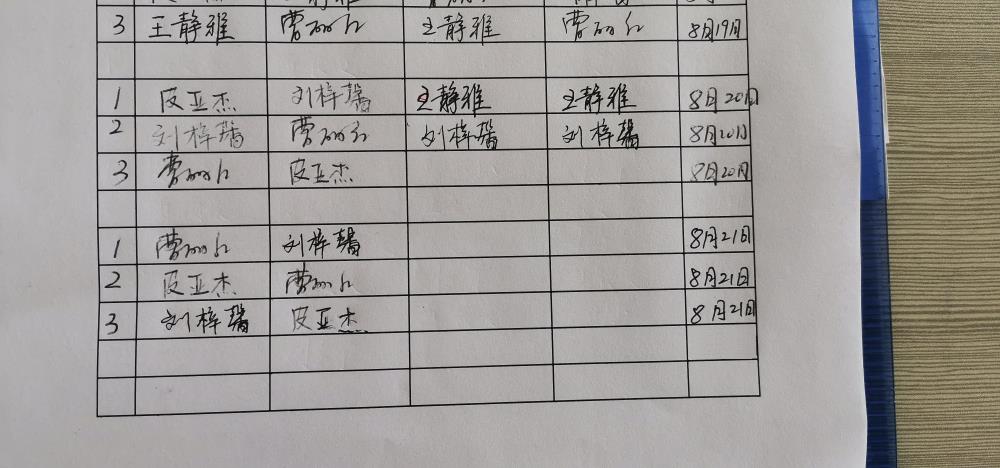 3 王静雅 曹丽红 王静雅 曹丽红 8月19日
1 皮亚杰 刘梓馨 王静雅 王静雅 8月20日
2 刘梓馨 曹丽红 刘梓馨 刘梓馨 8月20日
3 曹丽红 皮亚杰 8月20日
1 曹丽红 刘梓馨 8月21日
2 皮亚杰 曹丽红 8月21日
3 刘梓馨 皮亚杰 8月21日